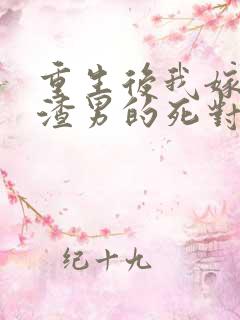 重生後我嫁
渣男的死對
纪十九